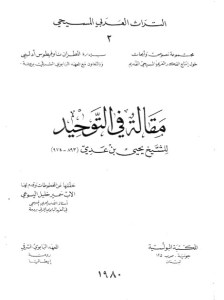 التراث العربي المسيحي
٢
مجموعة نصوص وأبحاث
حول إنتاج الفكر العربي المسيحي القديم
سيادة المطران ناوفيطوس أدلبي
وبالتعاون مع المعهد البابوي الشرقي برومة
مقالة في التوحيد
للشيخ يحيى بن عدي (٨٩٣-٩٧٤)
حققها عن المخطوطات وقدم لها
الأب سمير خليل اليسوعي
المكتبة البولسية
جونية
لبنان
المعهد البابوي الشرقي
رومة
إيطاليا
١٩٨٠